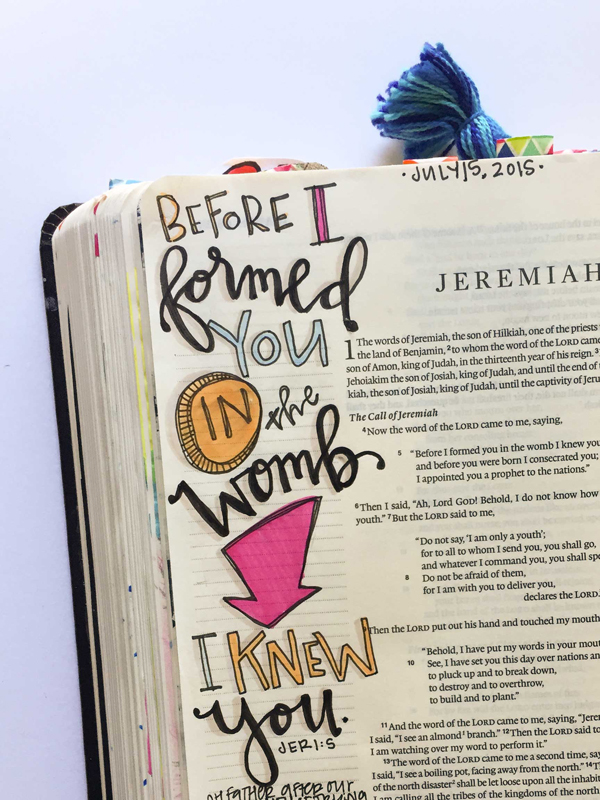 ·JULY 15, 2015·
BEFORE I
formed
YOU
IN the
womb
I KNEW
you.
JER 1:5
oh father after our
JEREMIAH
1 The words of Jeremiah, the son of Hilkiah, one of the priests
the land of Benjamin, 2 to whom the word of the LORD came
son of Amon, king of Judah, in the thirteenth year of his reign. 3
Jehoiakim the son of Josiah, king of Judah, and until the end of
kiah, the son of Josiah, king of Judah, until the captivity of
The Call of Jeremiah
4 Now the word of the LORD came to me, saying,
5 “Before I formed you in the womb I knew you
and before you were born I consecrated you;
I appointed you a prophet to the nations.”
6 Then I said, “Ah, Lord GOD! Behold, I do not know how
youth.” 7 But the LORD said to me,
“Do not say, ‘I am only a youth’;
for to all to whom I send you, you shall go,
and whatever I command you, you shall
8 Do not be afraid of them,
for I am with you to deliver you,
declares the LORD.
Then the LORD put out his hand and touched my mouth
“Behold, I have put my words in your
10 See, I have set you this day over nations
to pluck up and to break down,
to destroy and to overthrow,
to build and to plant.”
11 And the word of the LORD came to me, saying,
I said, “I see an almond 1 branch.” 12 Then the LORD said to
I am watching over my word to perform it.”
13 The word of the LORD came to me a second time,
I said, “I see a boiling pot, facing away from the north.” 14
of the north disaster 2 shall be let loose upon all the
I am calling all the tribes of the kingdoms of the north